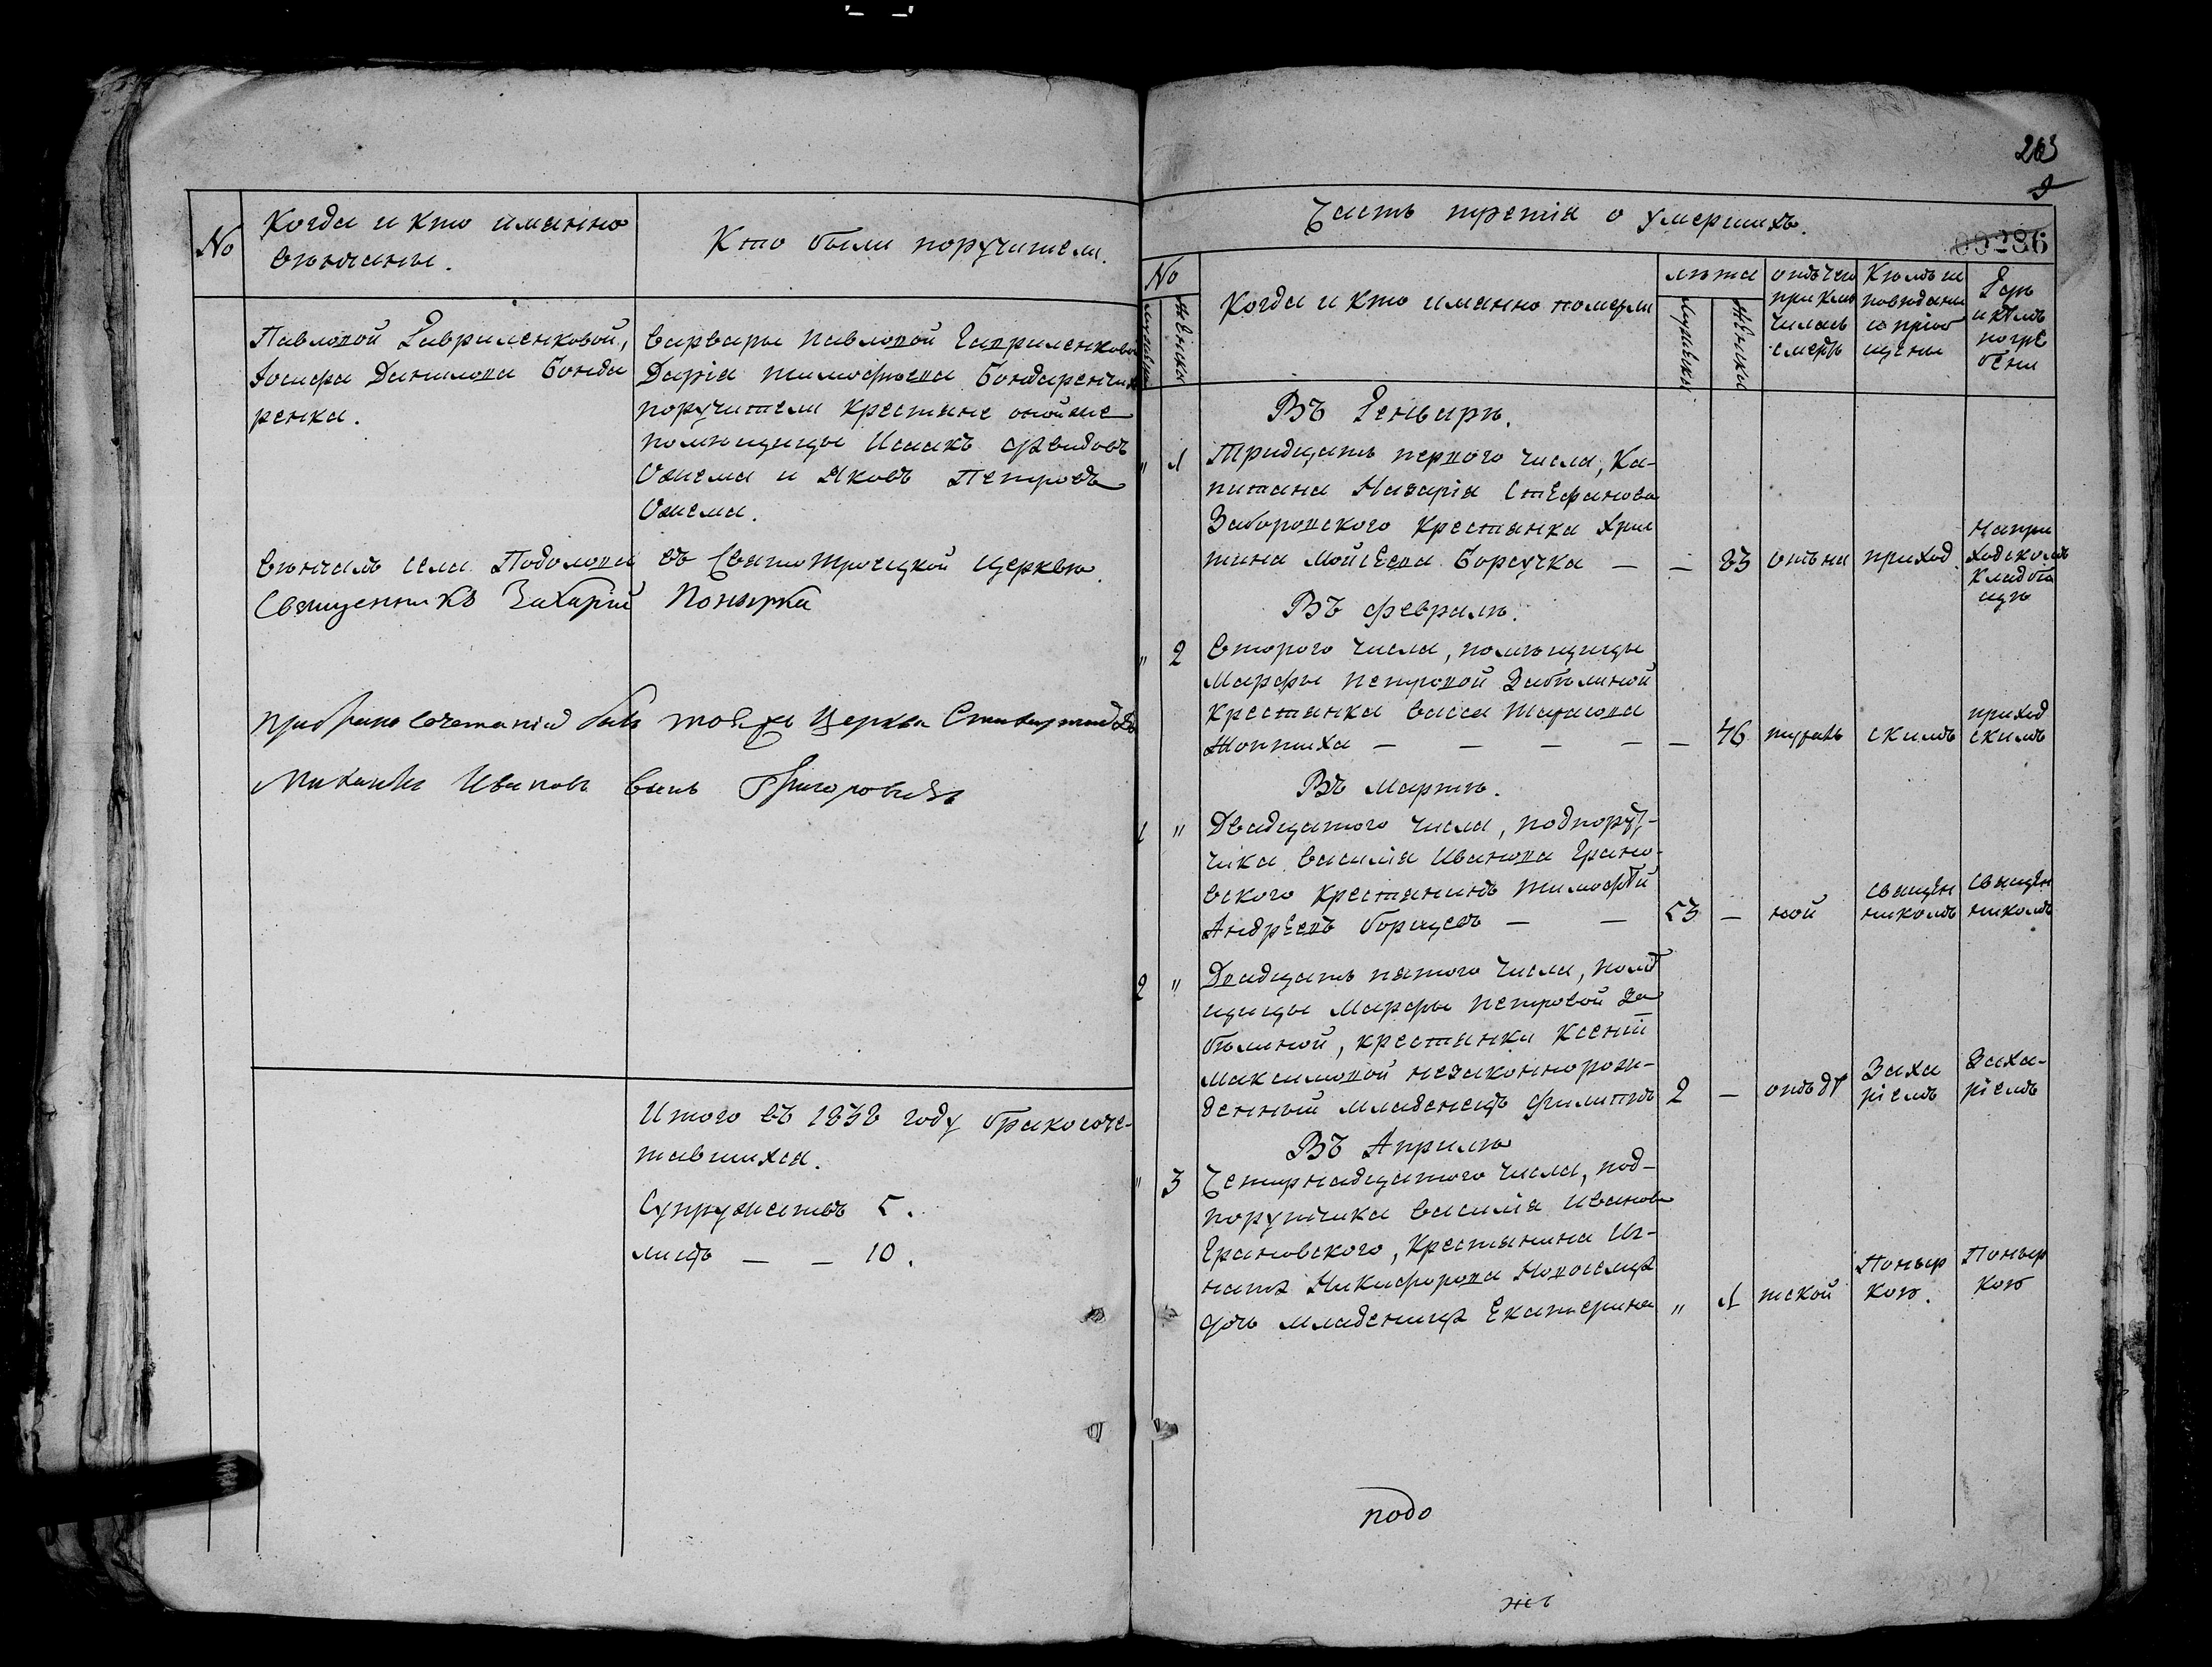 No
Когда и кто имянно
вѣнчаны.
Кто были поручители.
Павловой Гавриленковой,
Іосифа Данилова Бонда
ренка.
Варвары Павловой Гавриленковой
Дарія Тимофѣева Бондаренчиха
поручители крестяне оной же
помѣщицы Исаакъ Давидовъ
и Яковъ Петровъ
Вѣнчалъ села Подолова въ Святотроицкой церквѣ.
Священникъ Захарій Понырка
При бракосочетаніи былъ тояжъ Церкви
Михаилъ Ивановъ сынъ Григоровичъ
Итого въ 1838 году бракосоче-
тавшихся.
Супружествъ 5.
лицъ — — 10.
263
9
Часть третія о умершихъ.
09286
No
мужеска
женска
Когда и кто имянно померли
лѣта
мужеска
женска
отъ чего
приклю
чилась
смерть
Кѣмъ и
повѣданы
и приоб
щены
Гдѣ
и кѣмъ
погре
бени
Въ Генварѣ.
" 1 Тридцать первого числа, Ка-
питана Назарія Стефанова
Заборовского крестянка Хрис
тина Мойсеева Борсучка — — 83 отъ ка приход
На при
ходскомъ
кладби
щѣ
Въ Февралѣ.
" 2 Второго числа, помѣщицы
Марфы Петровой Забѣлиной
крестянка Васса
— — — — — 46 скимъ
приход
скимъ
Въ Мартѣ.
1 " Двадцатого числа, подпору-
чика Василія Иванова Грано-
вского крестянинъ Тимофѣй
Андреевъ Борщевъ — — 53 — ной
священ
никомъ
священ
никомъ
2 " Двадцать пятого числа, помѣ
щицы Марфы Петровой За
бѣлиной, крестянки Ксеніи
Максимовой незаконнорож-
денный младенецъ Филиппъ 2 —
Заха
ріемъ
Заха-
ріемъ
Въ Априлѣ
" 3 Четырнадцатого числа, под-
поручика Василія Иванова
Грановского, крестянина Иг-
ната Никифорова
дочь младеница Екатерина " 1 тской
Поныр
кою.
Поныр
кою
подо